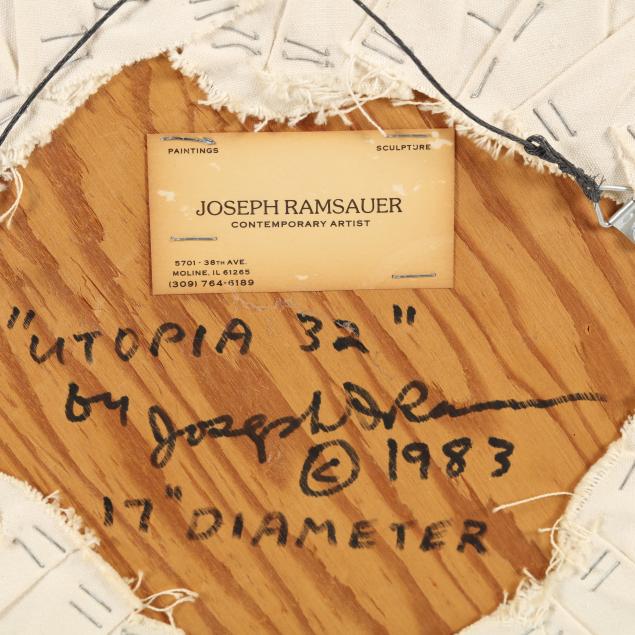 PAINTINGS SCULPTURE
JOSEPH RAMSAUER
CONTEMPORARY ARTIST
5701 - 38TH AVE.
MOLINE, IL 61265
(309) 764-6189
"UTOPIA 32"
by Joseph D Ramsauer
© 1983
17" DIAMETER